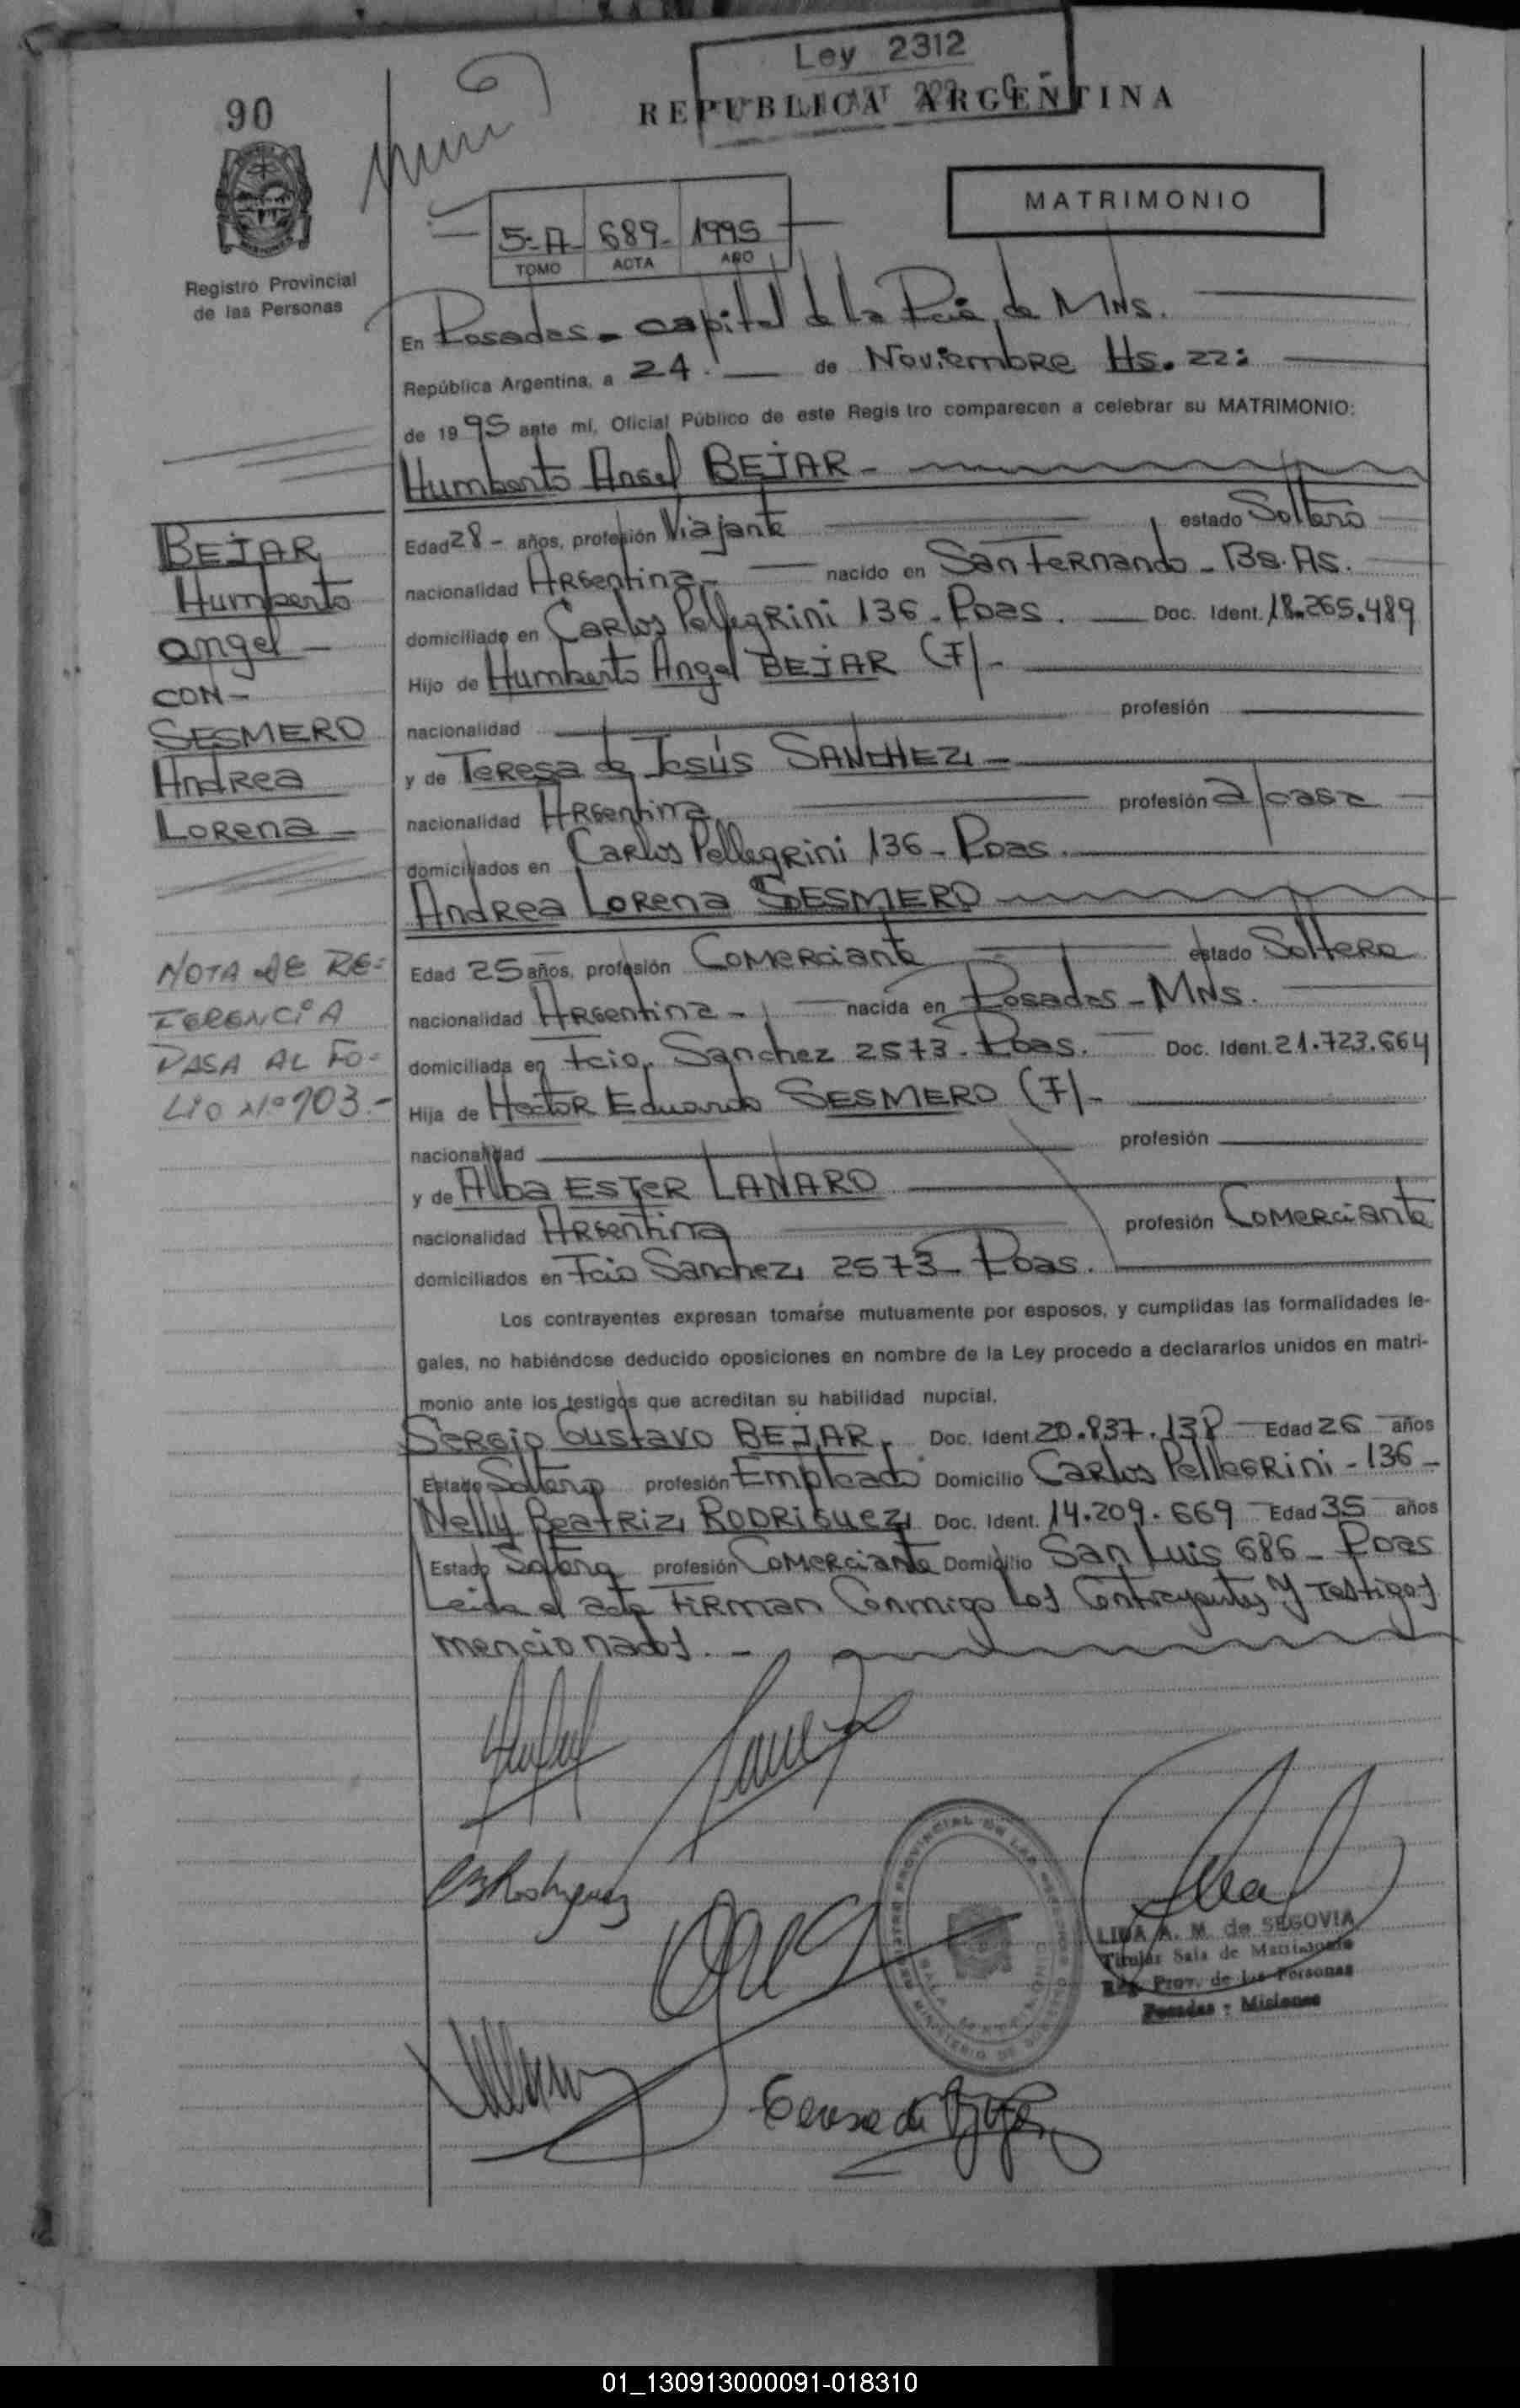 Ley 2312
90
REPUBLICA ARGENTINA
MATRIMONIO
5-A- 689- 1995
TOMO ACTA AÑO
Registro Provincial
de las Personas
En Posadas - capital de la Pcia. de MNS.
República Argentina, a 24.- de Noviembre Hs. 22:
de 1995 ante mí, Oficial Público de este Regis tro comparecen a celebrar su MATRIMONIO:
Humberto Angel BEJAR -
Edad 28 - años, profesión Viajante estado Soltero
nacionalidad Argentina - nacido en San Fernando - Bs. As.
domiciliado en Carlos Pellegrini 136 - Poas. Doc. Ident. 18.265.489
Hijo de Humberto Angel BEJAR (F) -
nacionalidad profesión
y de Teresa de Jesús SANCHEZ -
nacionalidad Argentina profesión a/casa
domiciliados en Carlos Pellegrini 136 - Poas.
Andrea Lorena SESMERO
Edad 25 años, profesión Comerciante estado Soltera
nacionalidad Argentina - nacida en Posadas - MNS.
domiciliada en Fcio. Sanchez 2573 - Poas. Doc. Ident. 21.723.664
Hija de Hector Eduardo SESMERO (F) -
nacionalidad profesión
y de Alba ESTER LANARO
nacionalidad Argentina profesión Comerciante
domiciliados en Fcio Sanchez 2573 - Poas.
Los contrayentes expresan tomarse mutuamente por esposos, y cumplidas las formalidades le-
gales, no habiéndose deducido oposiciones en nombre de la Ley procedo a declararlos unidos en matri-
monio ante los testigos que acreditan su habilidad nupcial.
Sergio Gustavo BEJAR. Doc. Ident. 20.837.138 Edad 26 años
Estado Soltero profesión Empleado Domicilio Carlos Pellegrini - 136 -
Nelly Beatriz RODRIGUEZ Doc. Ident. 14.209.669 Edad 35 años
Estado Soltera profesión Comerciante Domicilio San Luis 686 - Poas
Leida el acta firman Conmigo los Contrayentes y Testigos
mencionados. -
BEJAR
Humberto
angel -
CON -
SESMERO
Andrea
Lorena -
NOTA DE RE-
FERENCIA
PASA AL FO-
LIO Nº 103.-
LIDA A. M. de SEGOVIA
Titular Sala de Matrimonio
Reg. Prov. de las Personas
Posadas - Misiones
01_130913000091-018310